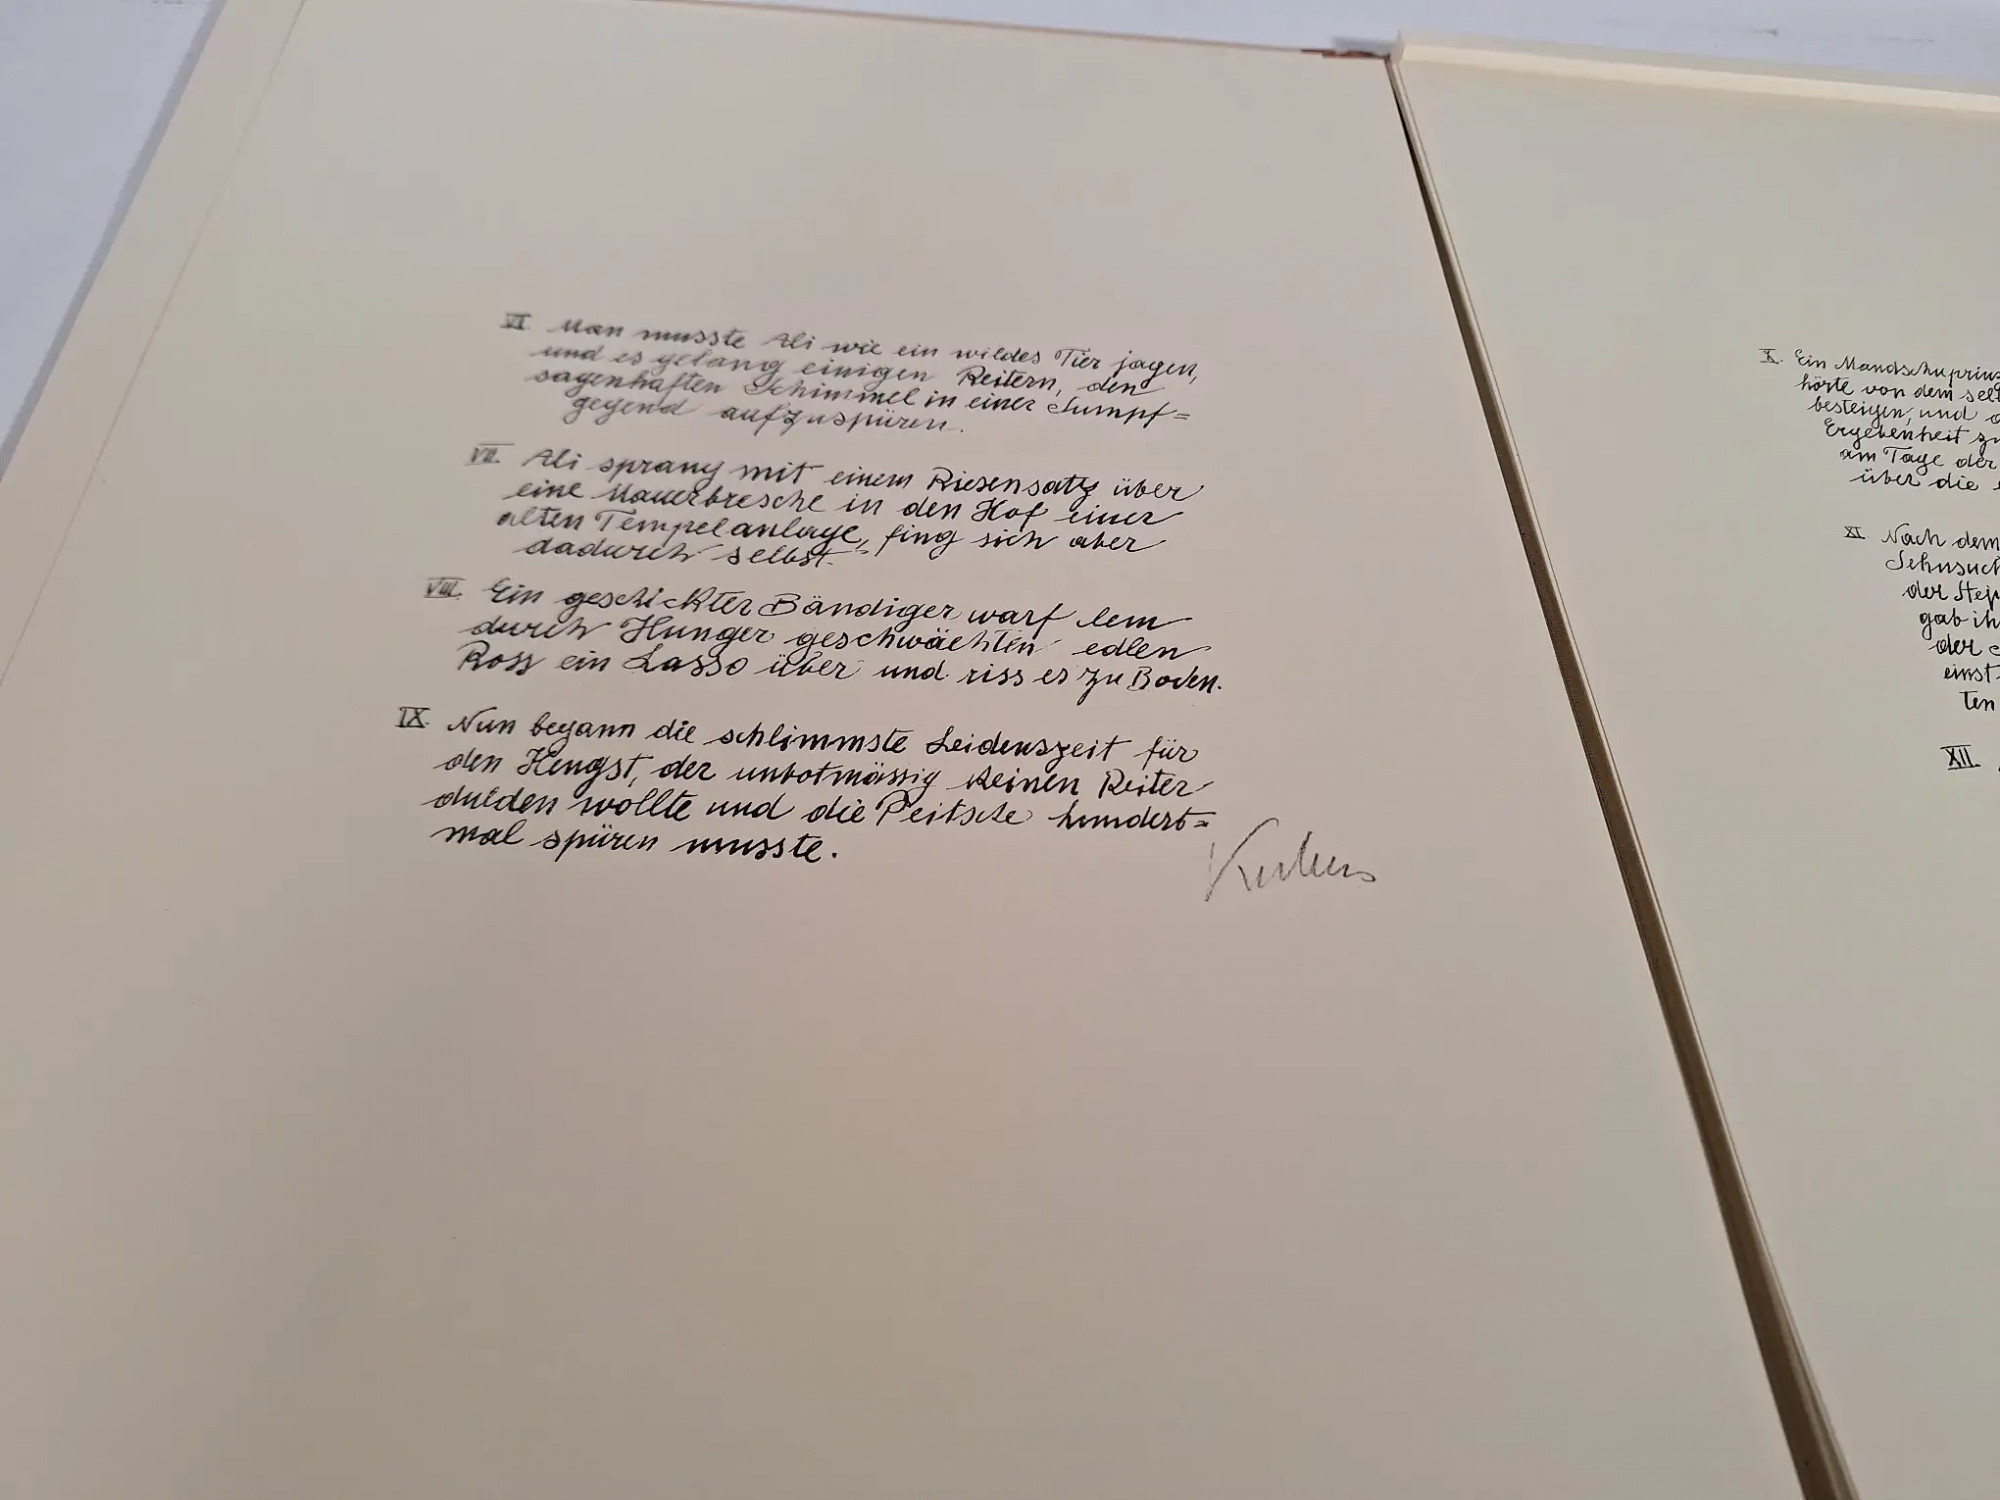 VI. Man musste Ali wie ein wildes Tier jagen,
und es gelang einigen Reitern, den
sagenhaften Schimmel in einer Sumpf=
gegend aufzuspüren.
VII. Ali sprang mit einem Riesensatz über
eine Mauerbresche in den Hof einer
alten Tempelanlage, fing sich aber
dadurch selbst.
VIII. Ein geschickter Bändiger warf dem
durch Hunger geschwächten edlen
Ross ein Lasso über und riss es zu Boden.
IX. Nun begann die schlimmste Leidenszeit für
den Hengst, der unbotmässig keinen Reiter
dulden wollte und die Peitsche hundert=
mal spüren musste.
X. Ein Mandschuprinz
hörte von dem
besteigen, und
Ergebenheit
am Tage der
über die
XI Nach dem
der
gab
der
einst
ten
XII.